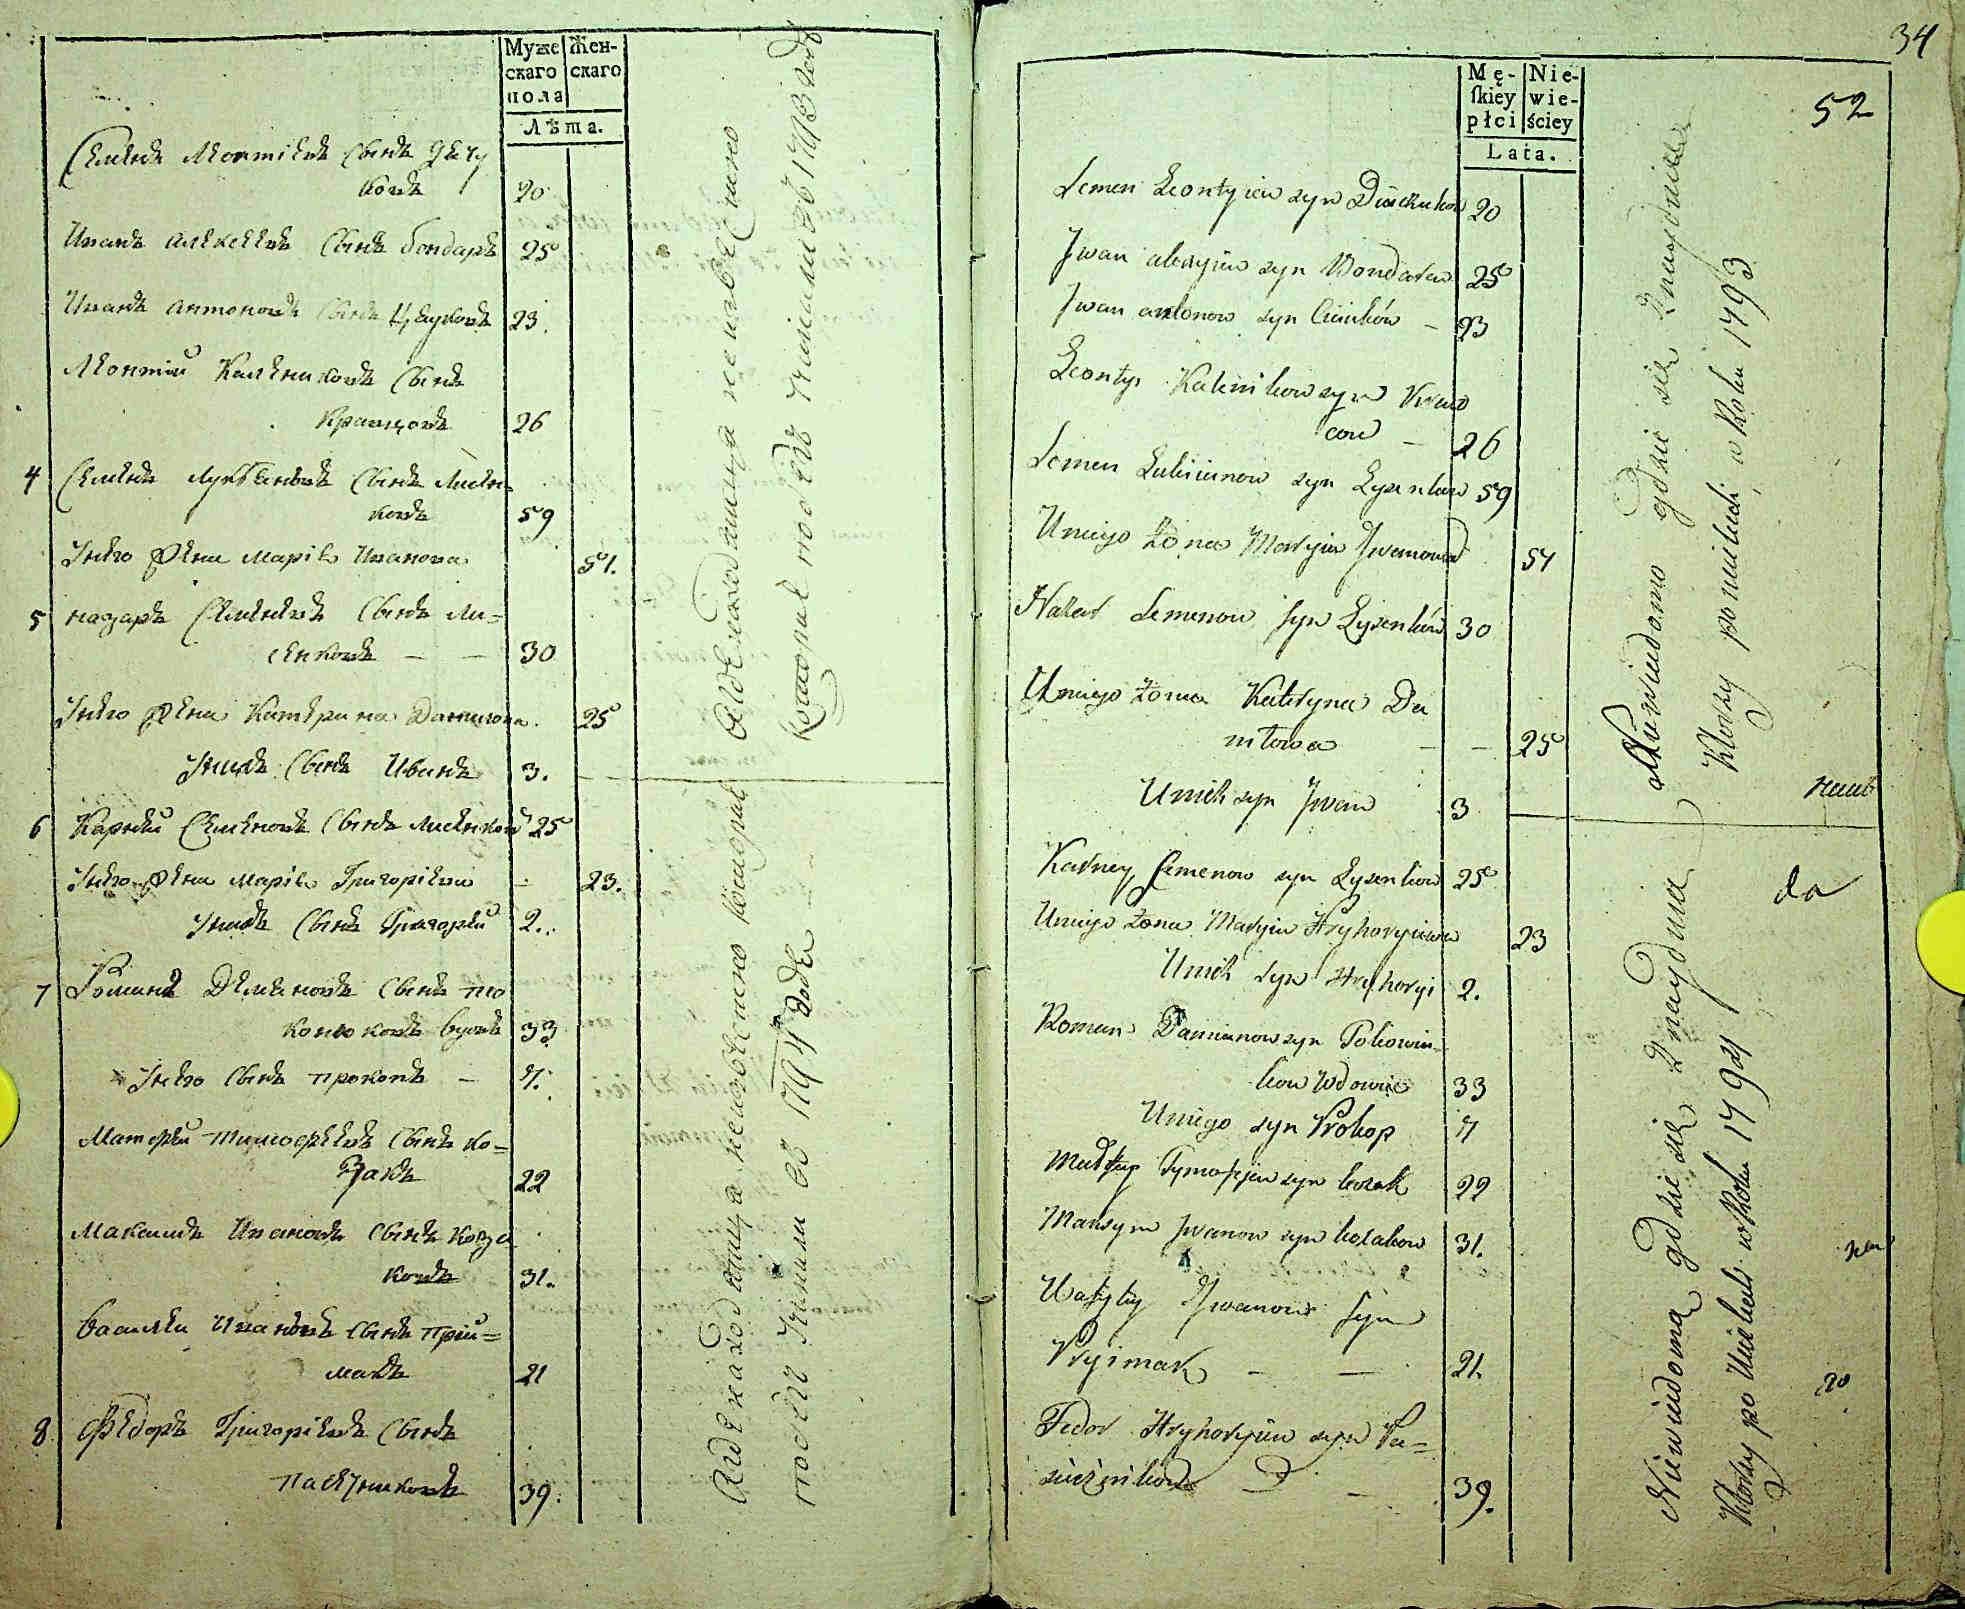 Муже скаго пола
Женскаго
Лѣта.
Семенъ Леонтіевъ Сынъ Дячу
ковъ 20
Иванъ Алексѣевъ Сынъ бондарь 25
Иванъ Антоновъ Сынъ 23.
Леонтій Калениковъ Сынъ
Кравцовъ 26
4 Семенъ Лукьяновъ Сынъ Лисен-
ковъ 59
У него Жена Марія Иванова 51.
5 Назаръ Семеновъ Сынъ Ли=
сенковъ — — 30
У него Жена Катерина Данилова. 25
У нихъ Сынъ Иванъ 3.
6 Карней Семеновъ Сынъ Лисенковъ 25
У него Жена Марія Григоріева — 23.
У нихъ Сынъ Григорій 2..
7 Романъ Деменовъ Сынъ по
ковъ вдовъ 33
У него Сынъ Прокопъ — 7.
Матфѣй Тимофѣевъ Сынъ Ко=
закъ 22
Максимъ Ивановъ Сынъ Коза
ковъ 31.
Василей Ивановъ Сынъ Прій=
макъ 21
8 Федоръ Григоріевъ Сынъ
Пасѣчниковъ 39.
А где находятца неизвестно
которые после 1793 года
А где находятца неизвестно которые
после въ 1794 года
34
52
Męſkiey płci
Niewieściey
Lata.
Semen Leontyiew syn Diaczukow 20
Jwan alexyiew syn Bondarew 25
Jwan antonow syn — 23
Leonty Kalenikow syn Kraw
cow — 26
Semen Lukianow syn Lysenkow 59
U niego żona Maryia Jwanowa 51
Nazar Semenow syn Lysenków 30
U niego żona Kateryna Da
niłowa — — 25
U nich syn Jwan 3
Karney Semenow syn Lysenkow 25
U niego żona Maryia Hryhoryiewa 23
U nich syn Hryhoryi 2.
Roman Damianow syn
kow Wdowiec 33
U niego syn Prokop 7
Matfey Tymofyiew syn kozak 22
Maxym Jwanow syn kozakow 31.
Wasyly Jwanow syn
Pryimak — — 21.
Fedor Hryhoryiew syn Pa=
siecznikow — 39.
Niewiadomo gdzie się znayduią
Którzy po w Roku 1793
Niewiadomo gdzie się znayduią
Którzy po w Roku 1794
da